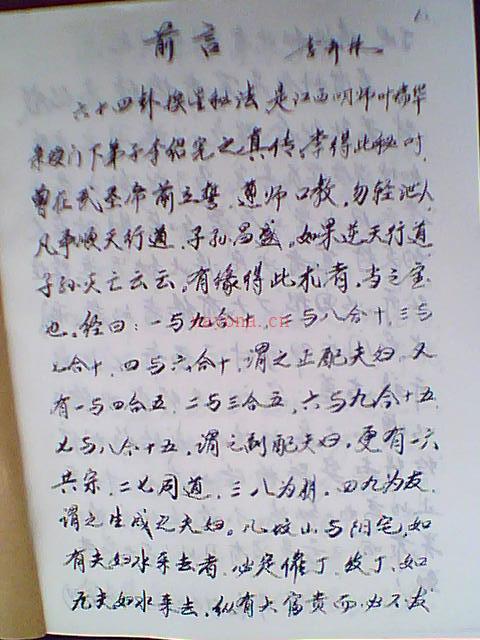 前言
六十四卦換星秘法是江西明师叶瑞华
亲授门下弟子李绍完之真传,学得此秘时,
曾在武圣帝前立誓,遵师口教,勿轻泄人
凡事顺天行道,子孙昌盛。如果逆天行道
子孙灭亡云云。有缘得此术者,当之宝
也。经曰:一与九合十,二与八合十,三与
七合十,四与六合十,谓之正配夫妇。又
有一与四合五,二与三合五,六与九合十五
七与八合十五,谓之副配夫妇,更有一六
共宗,二七同道,三八为朋,四九为友,
谓之生成之夫妇。凡坟山与阳宅,如
有夫妇水来去者,必定催丁发丁,如
无夫妇水来去,纵有大富贵而必不发